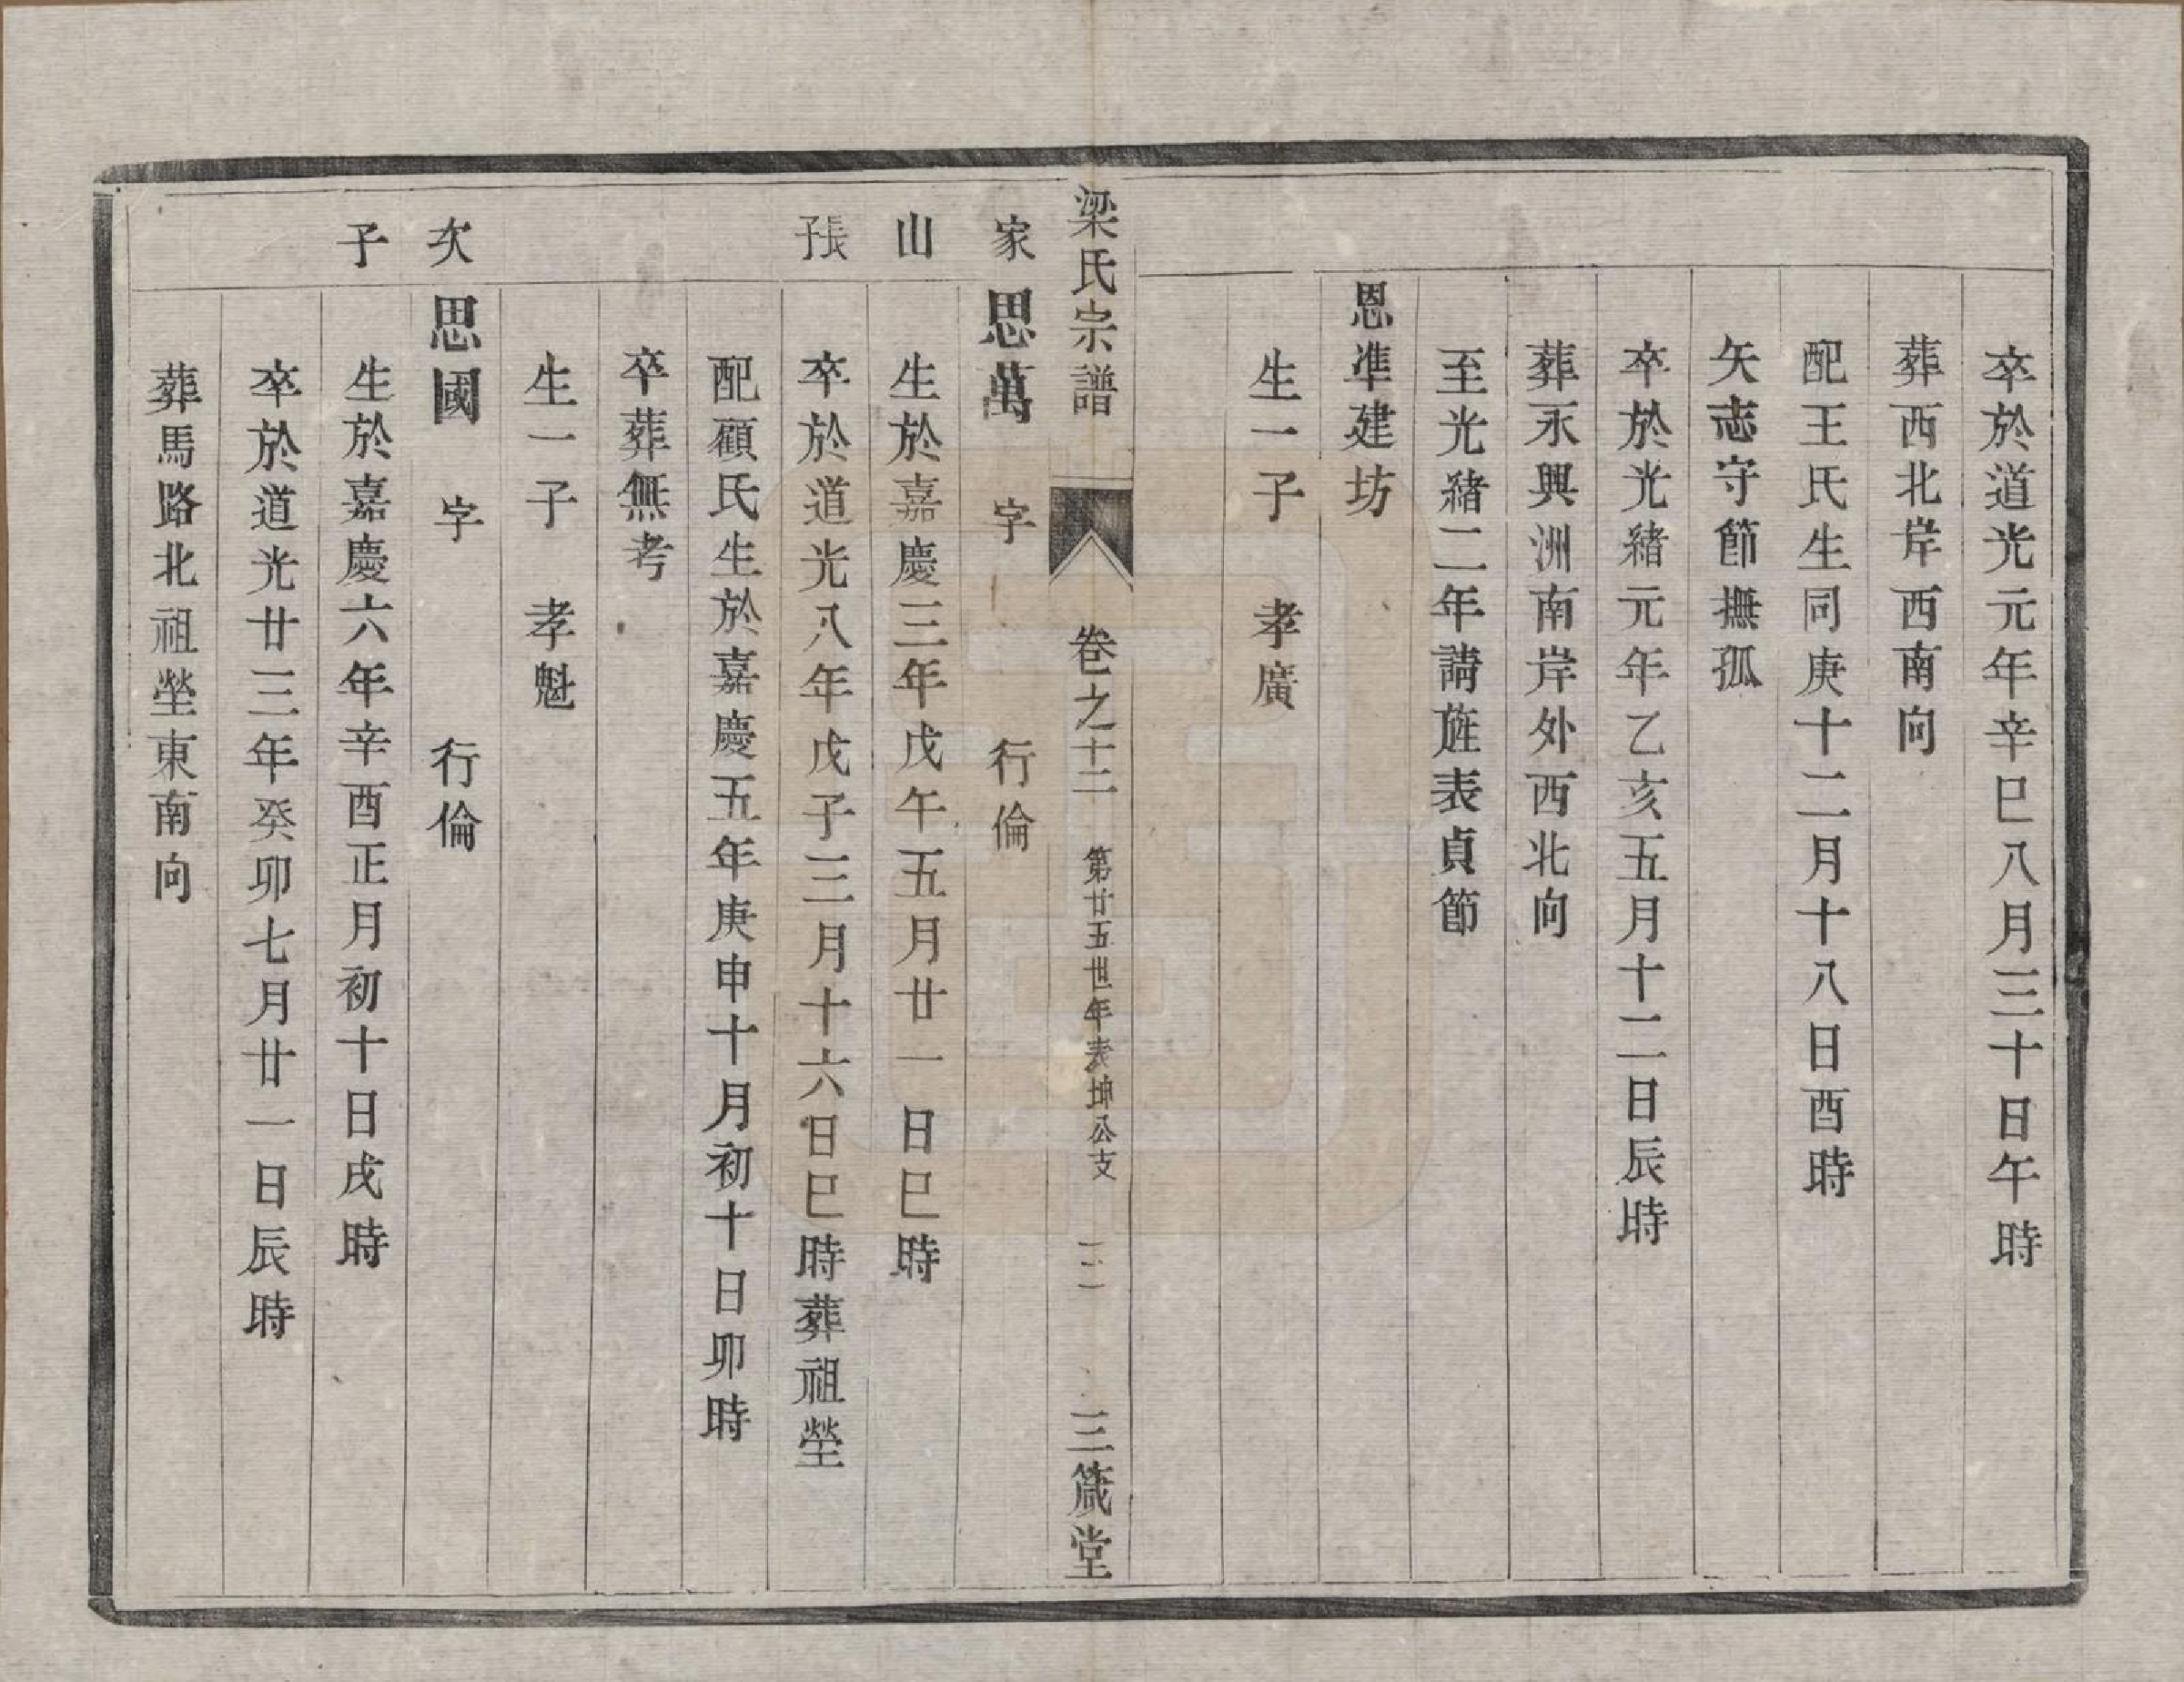 卒於道光元年辛巳八月三十日午時
葬西北岸西南向
配王氏生同庚十二月十八日酉時
矢志守節撫孤
卒於光緒元年乙亥五月十二日辰時
葬永興洲南岸外西北向
至光緒二年請旌表貞節
恩準建坊
生一子 孝廣
梁氏宗譜 卷之十二 第廿五世年表坤公支 二 三箴堂
家 思萬 字 行倫
山 生於嘉慶三年戊午五月廿一日巳時
張 卒於道光八年戊子三月十六日巳時葬祖塋
配顧氏生於嘉慶五年庚申十月初十日卯時
卒葬無考
生一子 孝魁
次 思國 字 行倫
子 生於嘉慶六年辛酉正月初十日戌時
卒於道光廿三年癸卯七月廿一日辰時
葬馬路北祖塋東南向